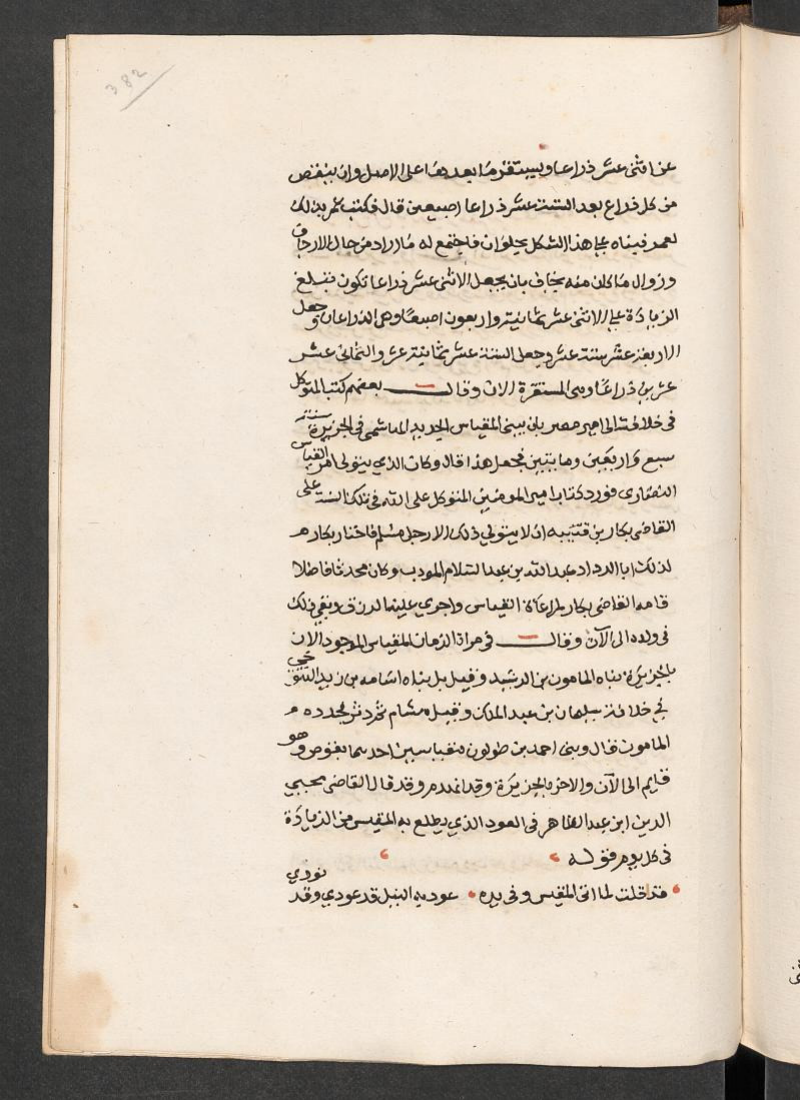 382
عن اثنى عشر ذراعا ويستقر ما بعدها على الاصل وان ينقص
من كل ذراع بعد الستة عشر ذراعا اصبعين قال فكتب عمر بذلك
لعمر فبناه على هذا الشكل بحلوان فاجتمع له ما اراد من حال الارجاف
وزوال ما كان منه يخاف بان يجعل الاثنى عشر ذراعا تكون فتبلغ
الزيادة على الاثنى عشر ثمانية واربعون اصبعا وهى الذراعان وجعل
الاربعة عشر ستة عشر وجعل الستة عشر ثمانية عشر والثمانى عشر
عشرين ذراعا وهى المستقرة الان وقال بعضهم كتب المتوكل
فى خلافته الى امير مصر بان يبنى المقياس الجديد الهاشمى فى الجزيرة سنة
سبع واربعين ومايتين فجعل هذا قال وكان الذي يتولى امر القياس
النصارى فورد كتاب امير المومنين المتوكل على الله فى تلك السنة على
القاضى بكار بن قتيبه ان لا يتولى ذلك الا رجل مسلم فاختار بكار
لذلك ابا الرداد عبد الله بن عبد السلام المودب وكان محدثا فاضلا
فامه القاضى بكار لمراعاة القياس واجري عليه الرزق وبقي ذلك
فى ولده الى الآن وقال فى مراة الزمان المقياس الموجود الان
بالجزيرة بناه المامون بن الرشيد وقيل بل بناه اسامه بن زيد التنوخي
فى خلافة سليمان بن عبد الملك وقيل هشام ثم دثر فجدده
المامون قال وبنى احمد بن طولون مقياسين احدهما بقوص وهو
قايم الى الآن والاخر بالجزيرة وقد انهدم وقد قال القاضى محيي
الدين ابن عبد الظاهر فى العود الذي يطلع به المقيس من الزيادة
فى كل يوم قوله
قد قلت لما اتى المقيس وفى يده عود به النيل قد عودي وقد نودي